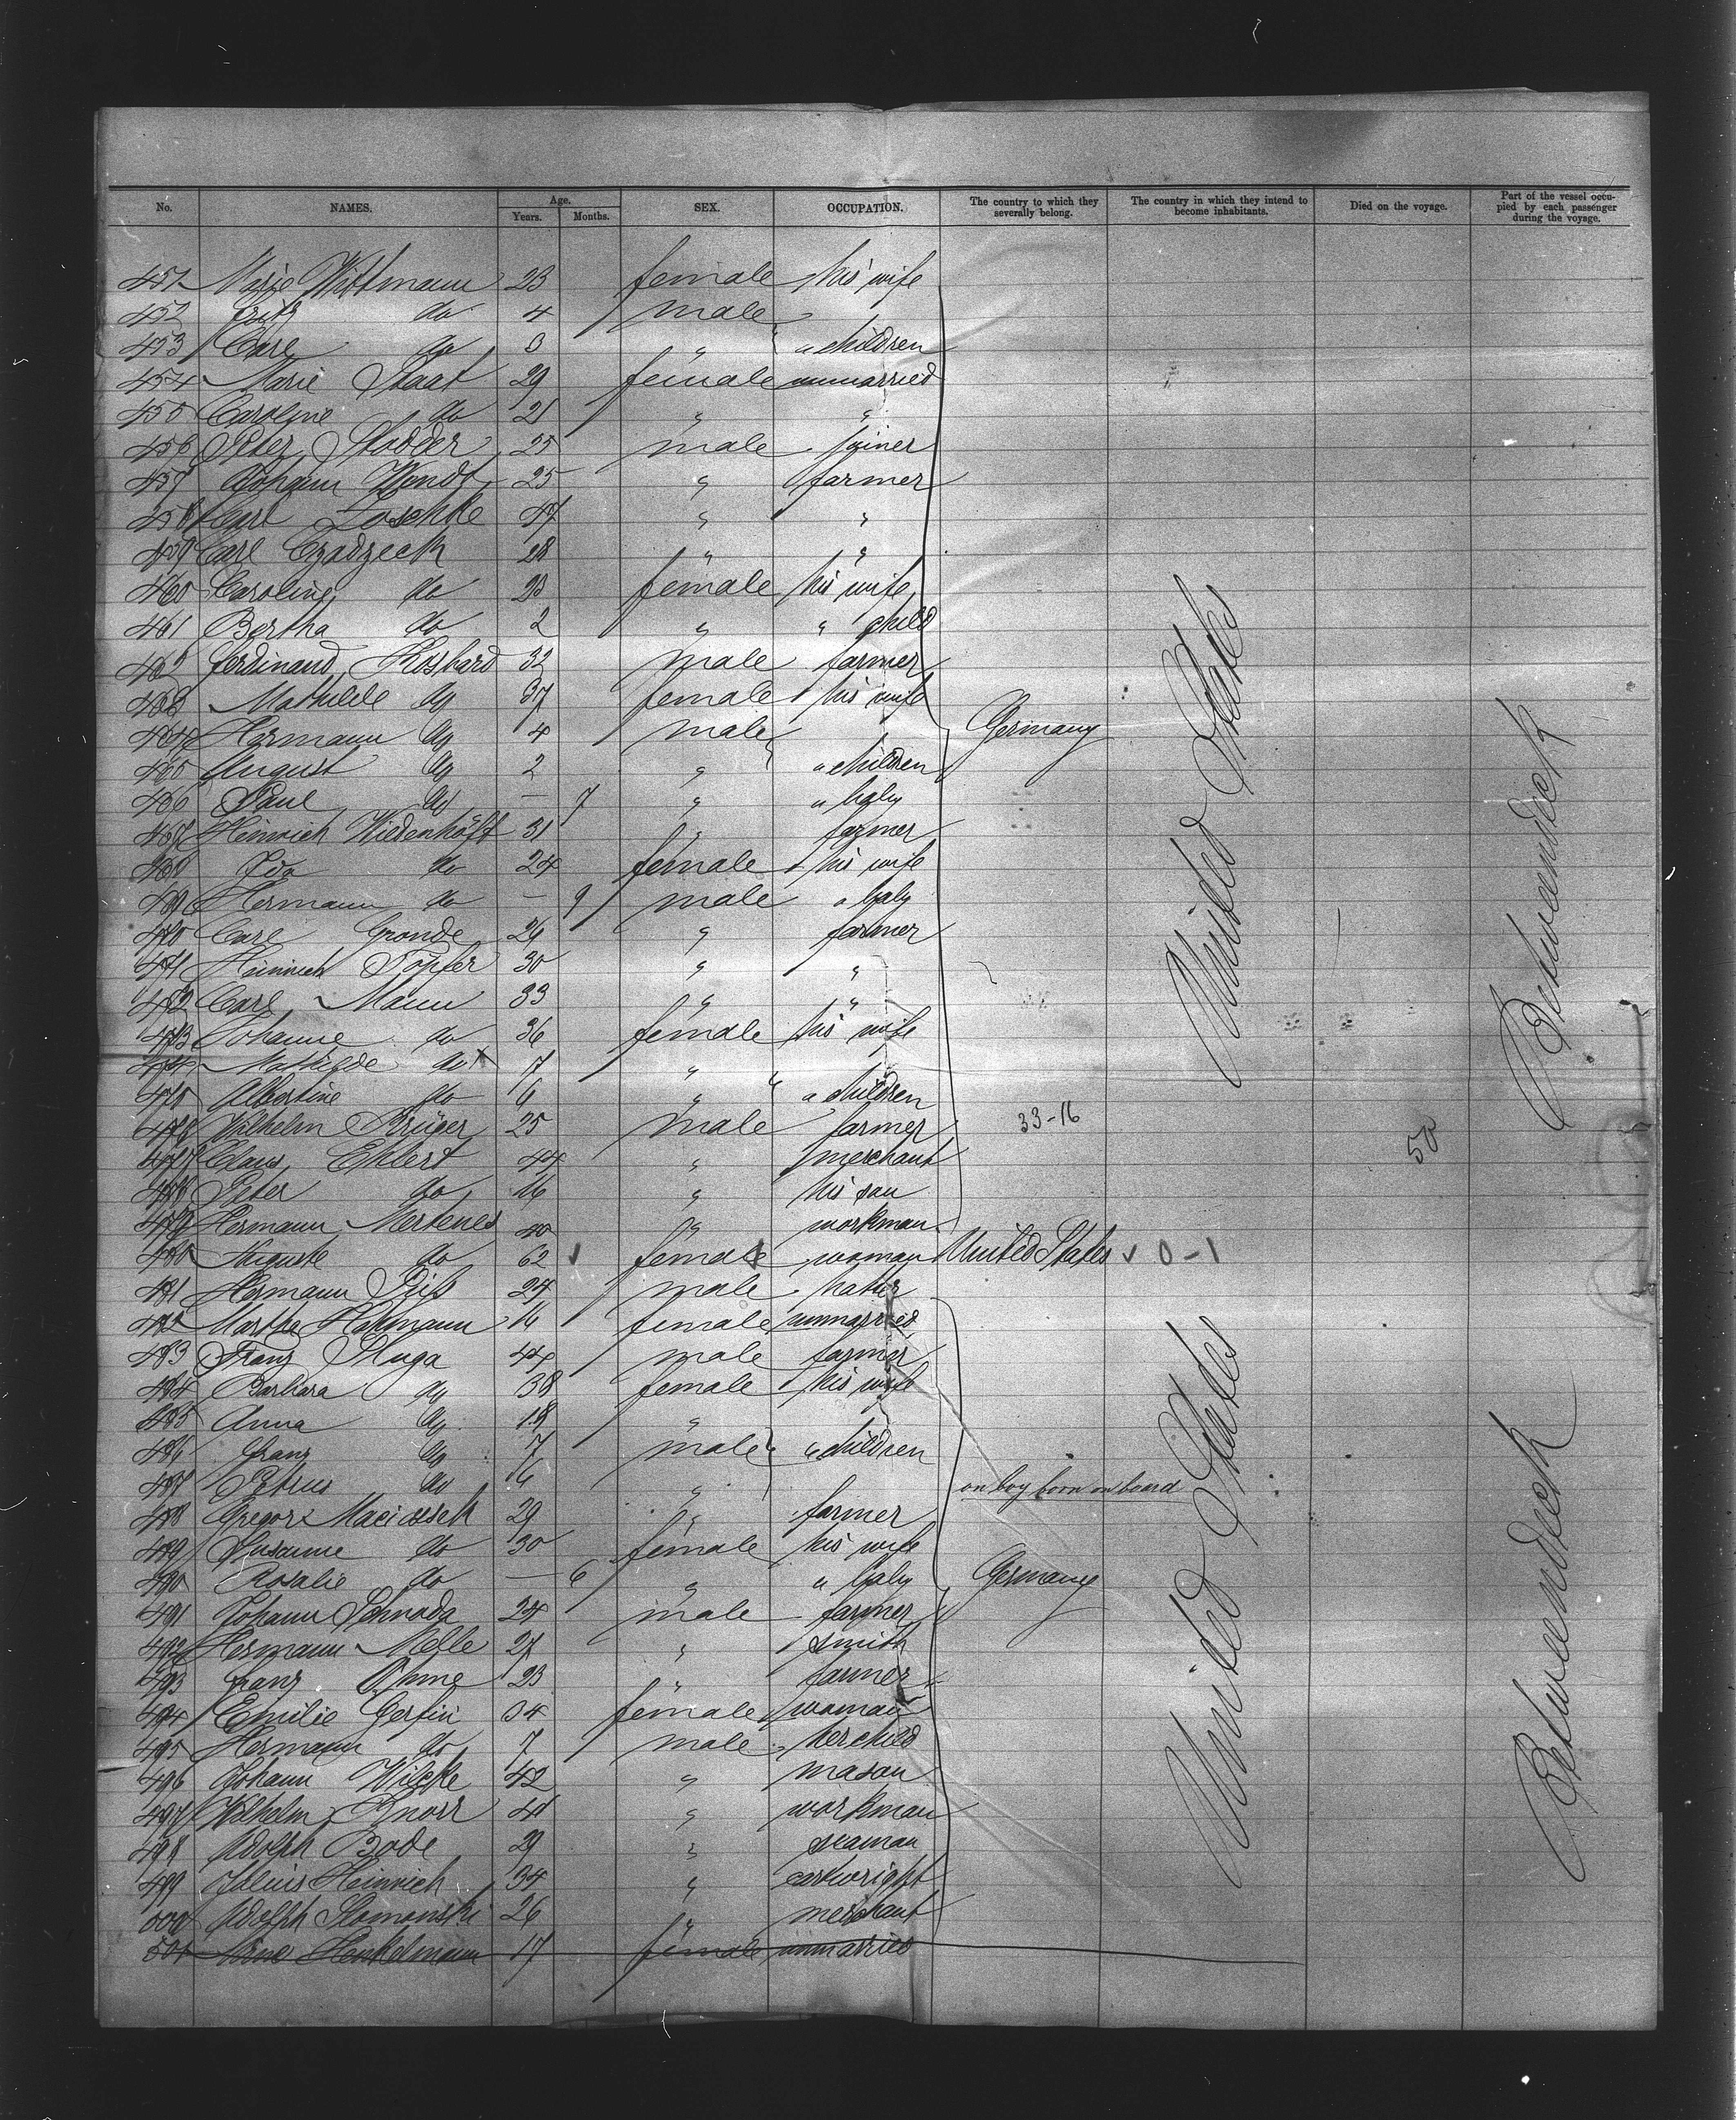 No. NAMES. Age. Years. Months. SEX. OCCUPATION. The country to which they severally belong. The country in which they intend to become inhabitants. Died on the voyage. Part of the vessel occupied by each passenger during the voyage.
451 Marie Wittmann 23 female his wife
452 Fritz do 4 male
453 Carl do 3 " " children
454 Marie Staat 29 female unmarried
455 Caroline do 21 " "
456 Peter Stodder 25 male joiner
457 Johann Wendt 25 " farmer
458 Carl Loschke 47 " "
459 Carl Czadzeck 28 " "
460 Caroline do 23 female his wife
461 Bertha do 2 " " child
462 Ferdinand 32 male farmer
463 Mathilde do 37 female his wife
464 Hermann do 4 male Germany
465 August do 2 " " children
466 Paul do — 7 " " baby
467 Heinrich Wiedenhöft 31 " farmer
468 Ida do 24 female his wife
469 Hermann do — 9 male " baby
470 Carl Gronde 26 " farmer
471 Heinrich Töpfer 30 " "
472 Carl Mann 33 " "
473 Johanne do 36 female his wife
474 Mathilde do x 7 "
475 Albertine do 6 " " children
476 Wilhelm Krüger 25 male farmer 33-16
477 Claus Ehlert 44 " merchant 50
478 Peter do 16 " his son
479 Hermann Mertenes 40 " workman
480 Auguste do 62 female woman United States 0-1
481 Hermann Piss 24 male hatter
482 Martha Hallmann 16 female unmarried
483 Franz Sluga 44 male farmer
484 Barbara do 38 female his wife
485 Anna do 18 "
486 Franz do 7 male " children
487 Petrus do 6 " on boy born on board
488 Gregor Maciossek 29 " farmer
489 Susanne do 30 female his wife
490 Rosalie do — 6 " " baby Germany
491 Johann Schnoda 24 male farmer
492 Hermann Melle 27 " smith
493 Franz Ohme 23 " farmer
494 Emilie Gerfin 34 female woman
495 Hermann do 7 male her child
496 Johann Wilcke 42 " mason
497 Wilhelm Knorr 41 " workman
498 Adolph Bode 29 " seaman
499 Julius Heinrich 34 " cartwright
500 Adolph Slomonski 26 " merchant
501 Henkelmann 17 female unmarried
United States
Betweendeck
United States
Betweendeck